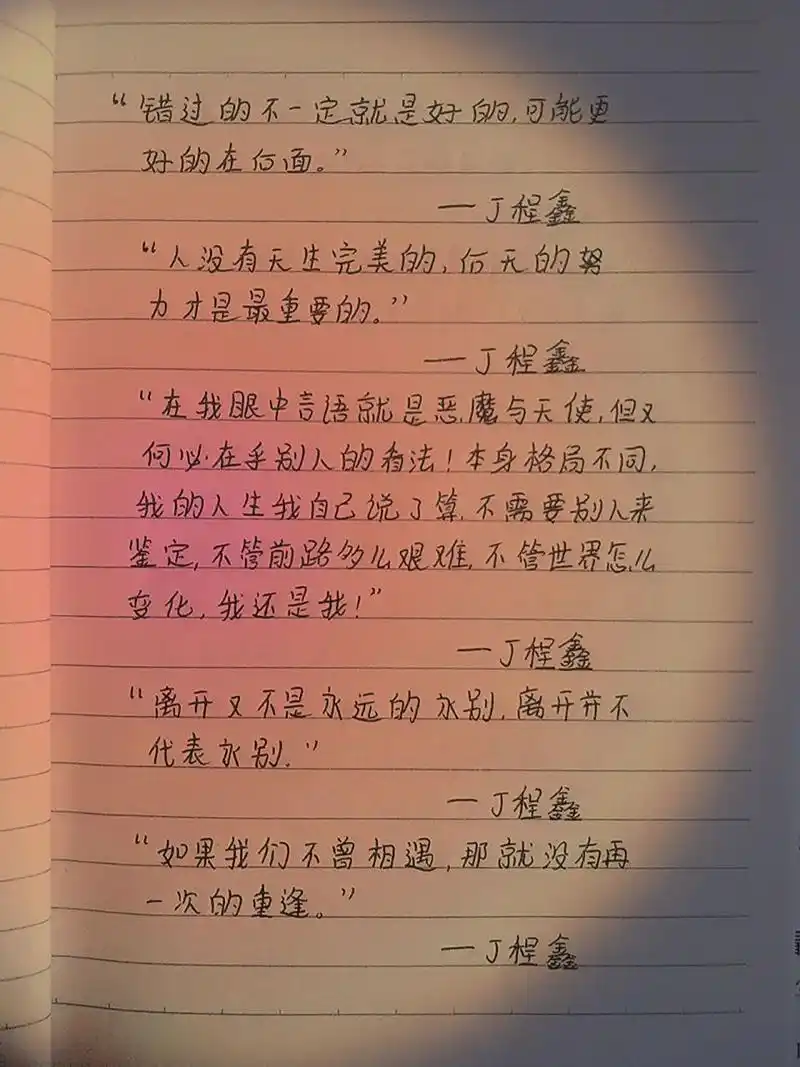 “错过的不一定就是好的,可能更
好的在后面。”
—丁程鑫
“人没有天生完美的,后天的努
力才是最重要的。”
—丁程鑫
“在我眼中言语就是恶魔与天使,但又
何必在乎别人的看法!本身格局不同,
我的人生我自己说了算,不需要别人来
鉴定,不管前路多么艰难,不管世界怎么
变化,我还是我!”
—丁程鑫
“离开又不是永远的永别,离开并不
代表永别.”
—丁程鑫
“如果我们不曾相遇,那就没有再
一次的重逢。”
—丁程鑫